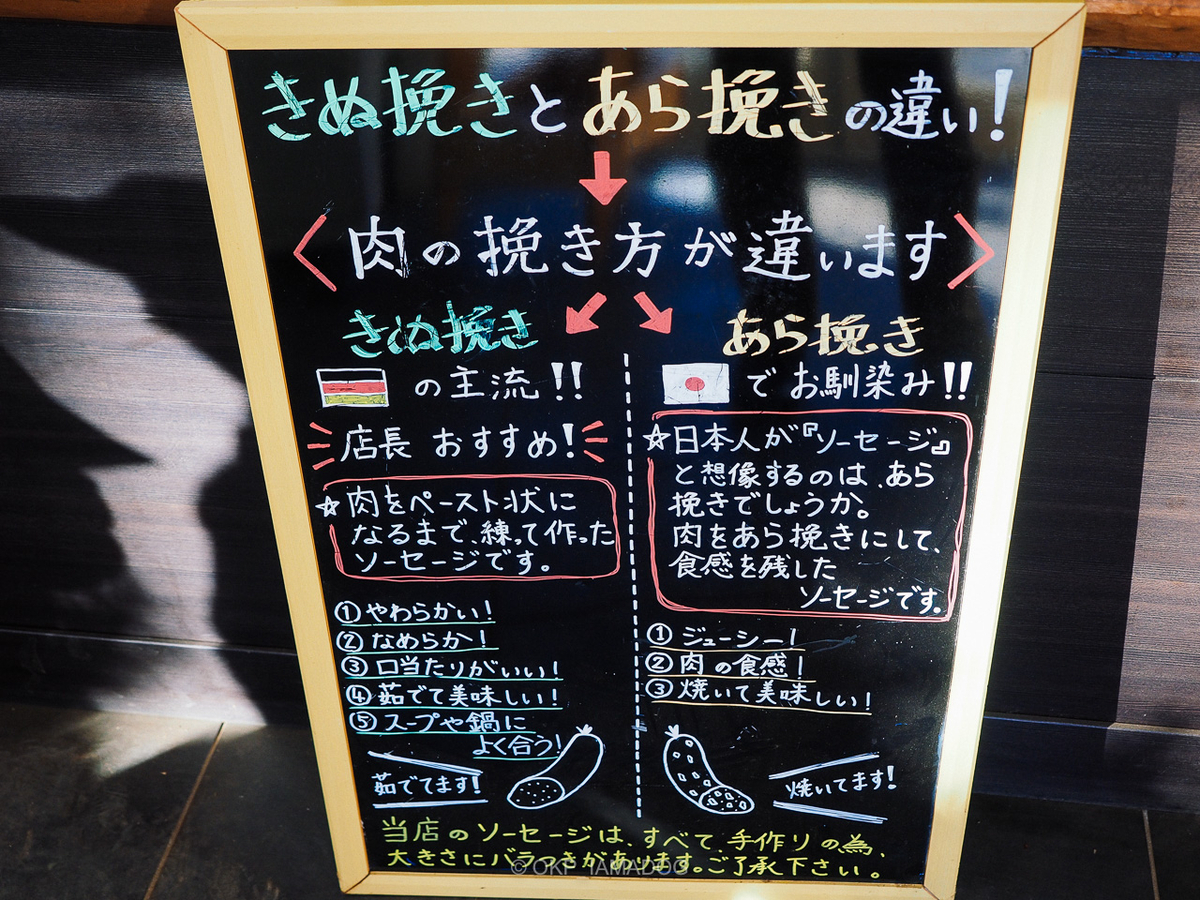 きぬ挽きとあら挽きの違い!
<肉の挽き方が違います>
きぬ挽き
の主流!!
店長 おすすめ!
☆肉をペースト状に
なるまで、練って作った
ソーセージです。
①やわらかい!
②なめらか!
③口当たりがいい!
④茹でて美味しい!
⑤スープや鍋に
よく合う!
茹でてます!
あら挽き
でお馴染み!!
☆日本人が『ソーセージ』
と想像するのは、あら
挽きでしょうか。
肉をあら挽きにして、
食感を残した
ソーセージです。
①ジューシー!
②肉の食感!
③焼いて美味しい!
焼いてます!
当店のソーセージは、すべて、手作りの為、
大きさにバラつきがあります。ご了承下さい。
© OKP YAMADOG